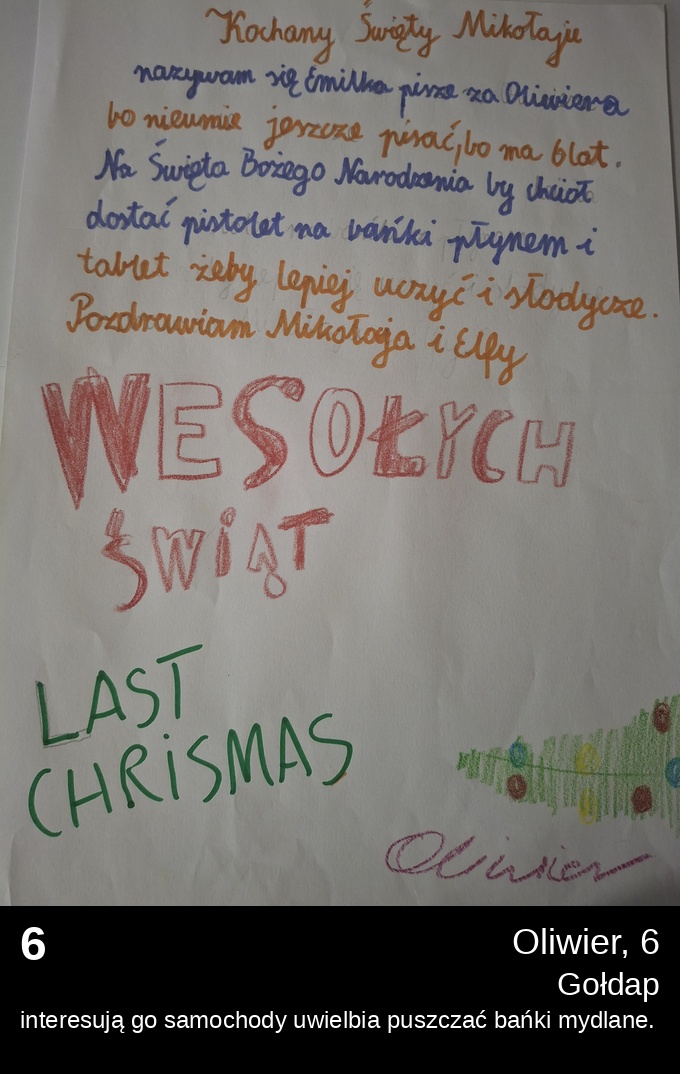 Kochany Święty Mikołaju
nazywam się Emilka pisze za Oliwiera
bo nieumie jeszcze pisać, bo ma 6 lat.
Na Święta Bożego Narodzenia by chcioł
dostać pistolet na bańki płynem i
tablet żeby lepiej uczyć i słodycze.
Pozdrawiam Mikołaja i Elfy
WESOŁYCH
ŚWIĄT
LAST
CHRISMAS
Oliwier
6
Oliwier, 6
Gołdap
interesują go samochody uwielbia puszczać bańki mydlane.